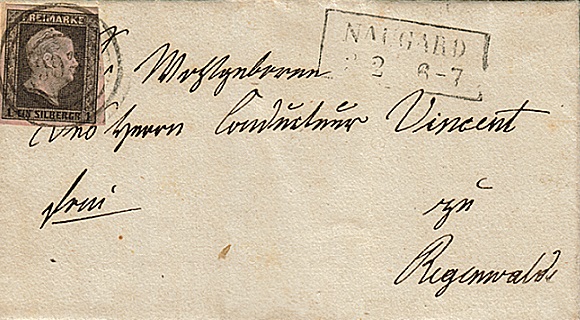 FREIMARKE
1 EIN SILBERGR. 1
NAUGARD
2 6-7
Wohlgeboren
Herrn Conducteur Vincent
frei
zu
Regenwalde